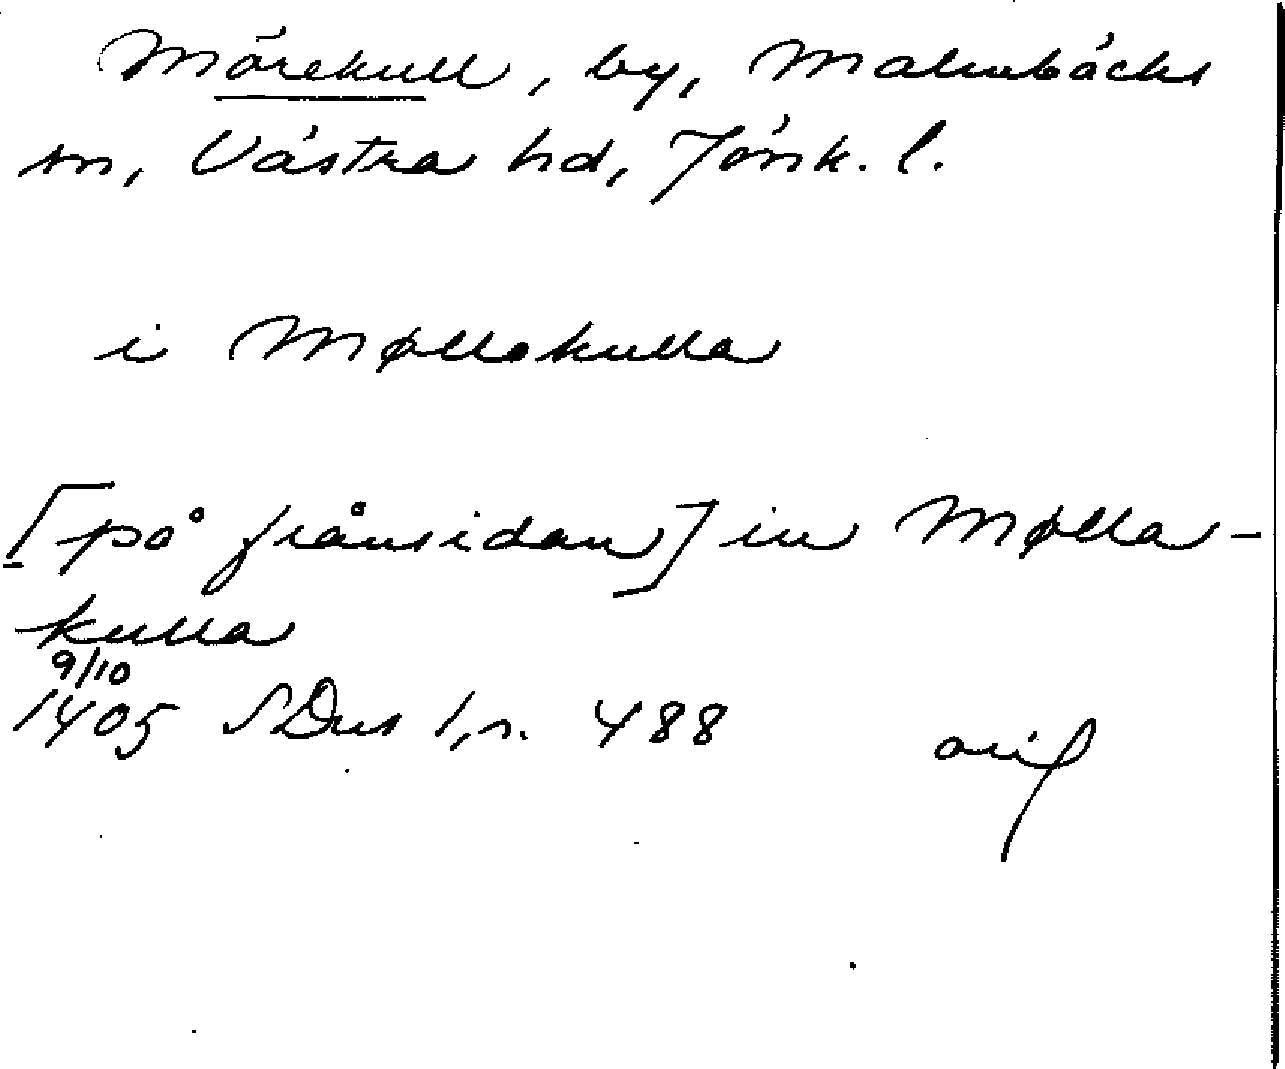 Mörekull, by, Malmbäcks
sn, Västra hd, Jönk. l.
i Møllekulla
[på frånsidan] in Mølla-
kulla
9/10
1405 SDns 1, s. 488 orig